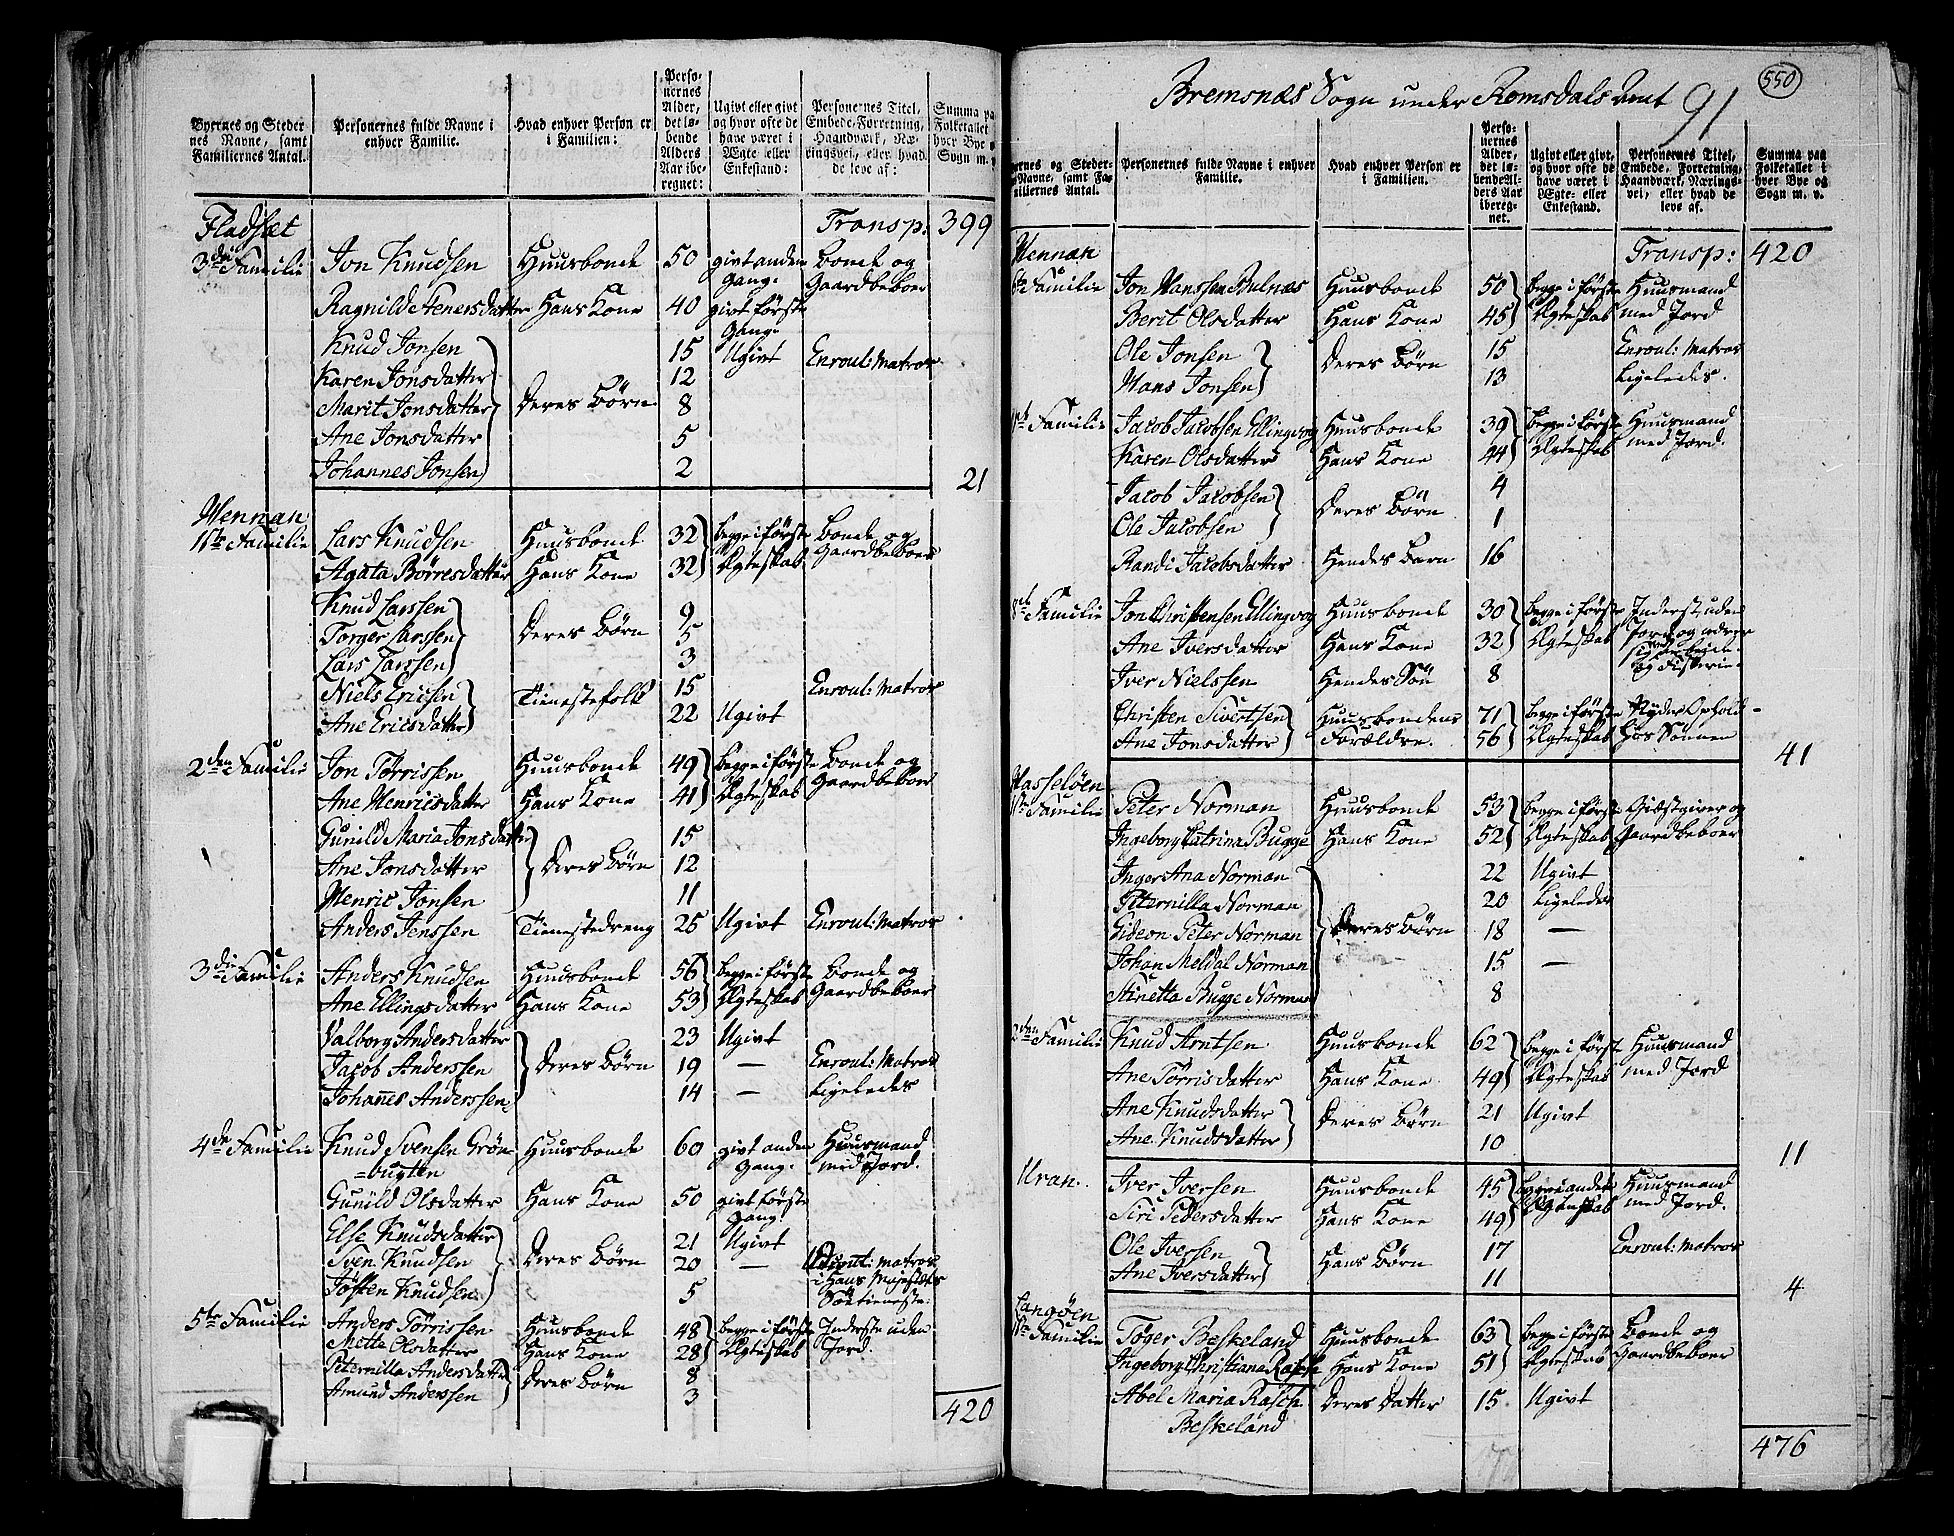 Byernes og Steder
nes Navne, samt
Familiernes Antal.
Personernes fulde Navne i
enhver Familie.
Hvad enhver Person er
i Familien:
Perso-
nernes
Alder,
det lø-
bende
Alders
Aar ibe-
regnet:
Ugivt eller givt
og hvor ofte de
have været i
Ægte eller
Enkestand:
Personernes Titel,
Embede, Forretning,
Haandværk, Næ-
ringsvei, eller hvad
de leve af:
Summa paa
Folketallet
hver Bye
Sogn m.
Fladsæt Transp: 399
3die Familie Jon Knudsen Huusbonde 50 givt anden Bonde og
Gang. Gaardbeboer
Ragnild Stenersdatter Hans Kone 40 givt første
Gang.
Knud Jonsen 15 Ugivt Enroul: Matros
Karen Jonsdatter 12
Marit Jonsdatter Deres Børn 8
Ane Jonsdatter 5
Johannes Jonsen 2
21
Hennan
1ste Familie Lars Knudsen Huusbonde 32 begge i første Bonde og
Agata Børresdatter Hans Kone 32 Ægteskab Gaardbeboer
Knud Larssen 9
Torger Larssen Deres Børn 5
Lars Larssen 3
Niels Ericsen Tienestefolk 15 Enroul: Matros
Ane Ericsdatter 22 Ugivt
2den Familie Jon Tørrissen Huusbonde 49 begge i første Bonde og
Ane Henricsdatter Hans Kone 41 Ægteskab Gaardbeboer
Gunild Maria Jonsdatter 15
Ane Jonsdatter Deres Børn 12
Henric Jonsen 11
Anders Jenssen Tienestedreng 25 Ugivt Enroul: Matros
3die Familie Anders Knudsen Huusbonde 56 begge i første Bonde og
Ane Ellingsdatter Hans Kone 53 Ægteskab Gaardbeboer
Valborg Andersdatter 23 Ugivt
Jacob Anderssen Deres Børn 19 — Enroul: Matros
Johannes Anderssen 14 — Ligeledes
4de Familie Knud Svensen Grøn- Huusbonde 60 givt anden Huusmand
=bugten Gang. med Jord.
Gunild Olsdatter Hans Kone 50 givt første
Gang.
Else Knudsdatter 21 Ugivt
Sven Knudsen Deres Børn 20 — Matros
Tosten Knudsen 5 i Hans Majestæts
Søetieneste.
5te Familie Anders Tørrissen Huusbonde 48 begge i første Inderste uden
Mette Olsdatter Hans Kone 28 Ægteskab Jord.
Peternilla Andersdatter Deres Børn 8
Amund Anderssen 3
420
Bremsnæs Sogn under Romsdals Amt 91
550
ernes og Steder-
Navne, samt Fa-
iliernes Antal.
Personernes fulde Navne i enhver
Familie.
Hvad enhver Person er
i Familien.
Perso-
nernes
Alder,
det lø-
bende Al-
ders Aar
ibereg-
net.
Ugivt eller givt,
og hvor ofte de
have været i
Ægte- eller
Enkestand.
Personernes Titel,
Embede, Forretning,
Haandværk, Nærings-
vei, eller hvad de
leve af.
Summa paa
Folketallet i
hver Bye og
Sogn m. v.
Hennan Transp: 420
Familie Jon Hanssen Bulnæs Huusbonde 50 begge i første Huusmand
Berit Olsdatter Hans Kone 45 Ægteskab med Jord
Ole Jonsen Deres Børn 15 Enroul: Matros
Hans Jonsen 13 Ligeledes.
Familie Jacob Jacobsen Ellingvog Huusbonde 39 begge i første Huusmand
Karen Olsdatter Hans Kone 44 Ægteskab med Jord.
Jacob Jacobsen Deres Børn 4
Ole Jacobsen 1
Randi Jacobsdatter Hendes Barn 16
Familie Jon Christensen Ellingvog Huusbonde 30 begge i første Inderst uden
Ane Iversdatter Hans Kone 32 Ægteskab Jord og nærer
sig
Iver Nielssen Hendes Søn 8 og Fiskerie.
Christen Sivertsen Huusbondens 71 begge i første Nyder Ophold
Ane Jonsdatter Forældre. 56 Ægteskab hos Sønnen
41
Hasseløen
1ste Familie Peter Norman Huusbonde 53 begge i første Giæstgiver og
Ingeborg Catrina Bugge Hans Kone 52 Ægteskab Gaardbeboer
Inger Ana Norman 22 Ugivt
Peternilla Norman 20 Ligeledes
Gideon Peter Norman Deres Børn 18 —
Johan Meldal Norman 15 —
Stinetta Bugge Norman 8
2den Familie Knud Arntsen Huusbonde 62 begge i første Huusmand
Ane Tørrisdatter Hans Kone 49 Ægteskab med Jord
Ane Knudsdatter Deres Børn 21 Ugivt
Ane Knudsdatter 10
11
Uran. Iver Iversen Huusbonde 45 begge i andet Huusmand
Siri Pedersdatter Hans Kone 49 Ægteskab med Jord.
Ole Iverssen Hans Børn 17 Enroul: Matros
Ane Iversdatter 11
4
Langøen
1ste Familie Tøger Beskeland Huusbonde 63 begge i første Bonde og
Ingeborg Christiane Rasch Hans Kone 51 Ægteskab Gaardbeboer
Abel Maria Rasch Deres Datter 15 Ugivt
Beskeland
476